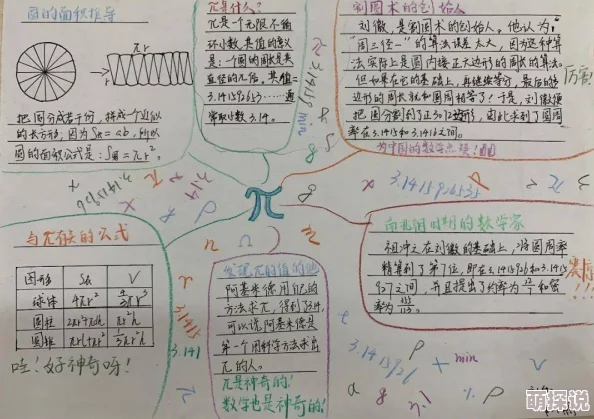 圆的面积推导
πr
r
把圆分成若干份，拼成一个近似
的长方形，因为S长=ab，所以
圆的面积公式是：S圆=πr²。
π是什么？
π是一个无限不循
环小数，其值的含义
是：一个圆的周长是其
直径的几倍，其值=
3.141592653……通
常取小数3.14。
割圆术的创始人
刘徽，是割圆术的创始人。他认为，
“周三径一”的算法误差太大，因为这种算
法实际上是圆内接正六边形的周长的算法。
但如果在它的基础上，再继续等分，最后的多
边形的周长就和圆周相等了！于是，刘徽便
把圆分割到了正3072边形，由此求到了圆周
率在3.1415和3.1416之间。
厉害！
为中国的数学点赞！
3.14159
min
3.1415926
3.14
π
3.1415916535
与π有关的公式
图形 S表 V
球体 4πr² 4/3πr³
圆柱 2πr²+πdh πr²h
圆锥 πrl+πr² 1/3πr²h
哇！好神奇呀！
3.1415
3.141
发现π的值的他
阿基米德用他的
方法求π，得到了3.14，
可以说，阿基米德是
第一个用科学方法求出
π的人。
π是神奇的！
数学也是神奇的！
南北朝时期的数学家
祖冲之在刘徽的基础上，将圆周率
精算到了第7位，即在3.1415926和3.1415
927之间，并且提出了约率为22/7和密
率为355/113。
3.1415926
min
萌探说